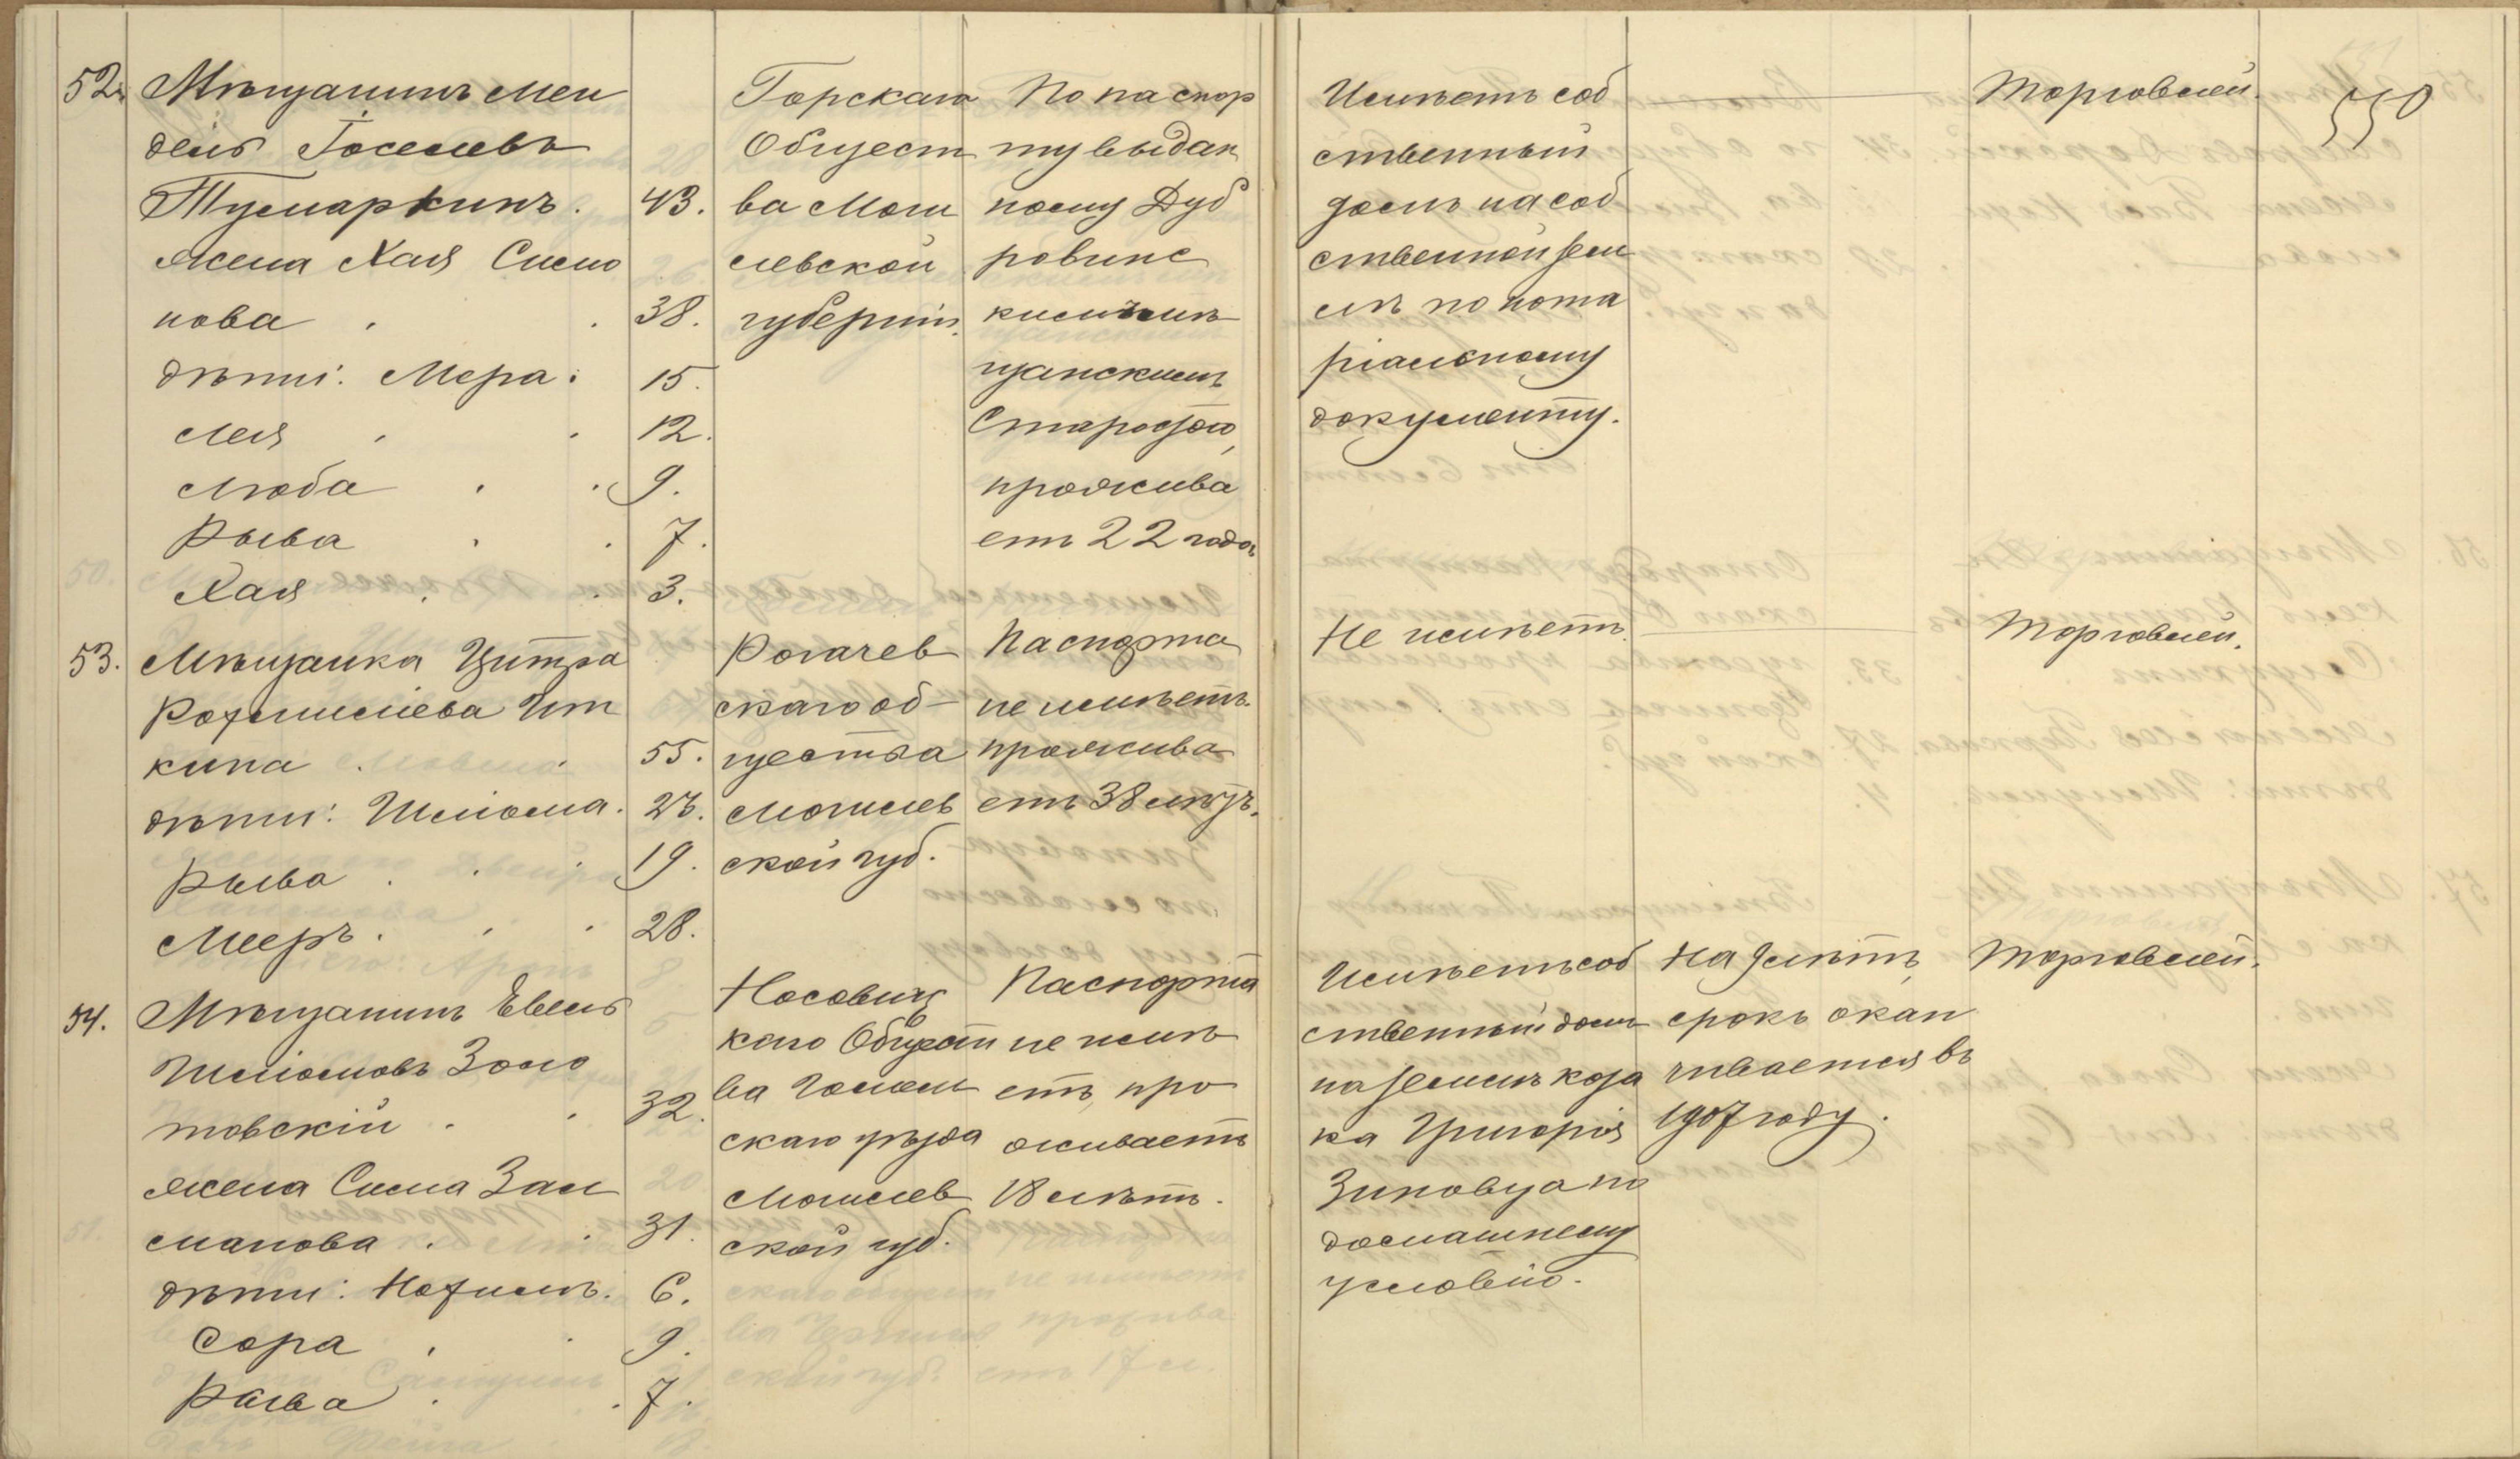 550
52. Мѣщанинъ Мен
дель Іоселевъ
Тумаркинъ. 43.
жена Хая Симо
нова . . 38.
дѣти: Мера. 15.
Лея . . 12.
Люба . . 9.
Рыва . . 7.
Хая . . 3.
Горскаго
Общест
ва Моги
левской
губерніи.
По паспор
ту выдан
ному Дуб
ровинс
кимъ мѣ
щанскимъ
Старостою,
прожива
етъ 22 года
Имѣетъ соб
ственный
домъ на соб
ственной зем
лѣ по нота
ріальному
документу.
Торговлей.
53. Мѣщанка Цитра
Рахмиліева Ит
кина . . 55.
дѣти: Шліома. 23.
Рыва . . 19.
Мееръ . . 28.
Рогачев
скаго об-
щества
Могилев
ской губ.
Паспорта
не имѣетъ.
прожива
етъ 38 лѣтъ.
Не имѣетъ.
Торговлей.
54. Мѣщанинъ Евель
Шліомовъ Золо
товскій . . 32.
жена Сима Зал
манова . . 31.
дѣти: Нохимъ. 6.
Сора . . 9.
Рыва . . 7.
Носовиц
каго Общест
ва Гомель
скаго уѣзда
Могилев
ской губ.
Паспорта
не имѣ
етъ, про
живаетъ
18 лѣтъ.
Имѣетъ соб
ственный домъ
на землѣ коза
ка Григорія
Зиновца по
домашнему
условію.
На лѣтъ,
срокъ окан
чивается въ
1907 году.
Торговлей.